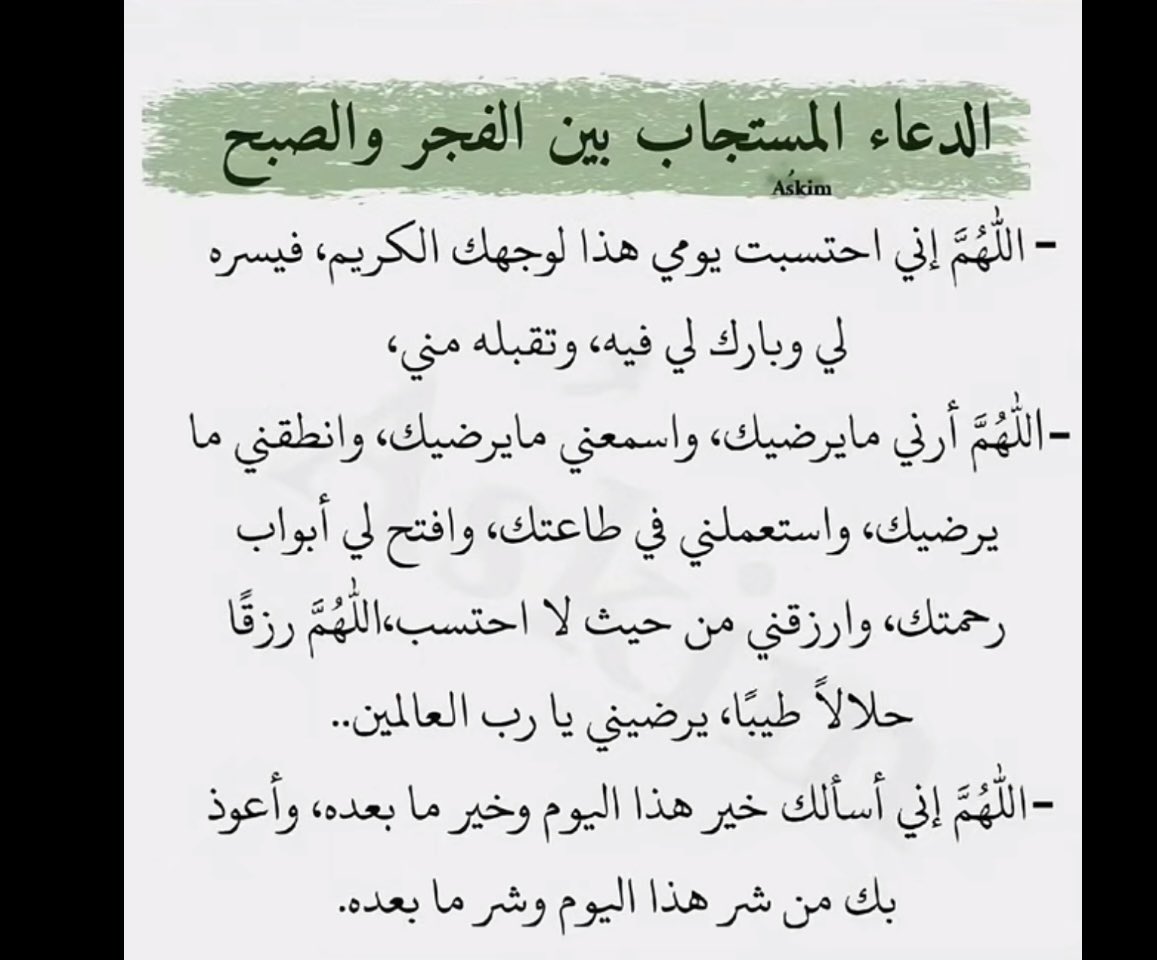 الدعاء المستجاب بين الفجر والصبح
Askim
- اللّٰهُمَّ إني احتسبت يومي هذا لوجهك الكريم، فيسره
لي وبارك لي فيه، وتقبله مني،
-اللّٰهُمَّ أرني مايرضيك، واسمعني مايرضيك، وانطقني ما
يرضيك، واستعملني في طاعتك، وافتح لي أبواب
رحمتك، وارزقني من حيث لا احتسب،اللّٰهُمَّ رزقًا
حلالاً طيبًا، يرضيني يا رب العالمين..
-اللّٰهُمَّ إني أسألك خير هذا اليوم وخير ما بعده، وأعوذ
بك من شر هذا اليوم وشر ما بعده.